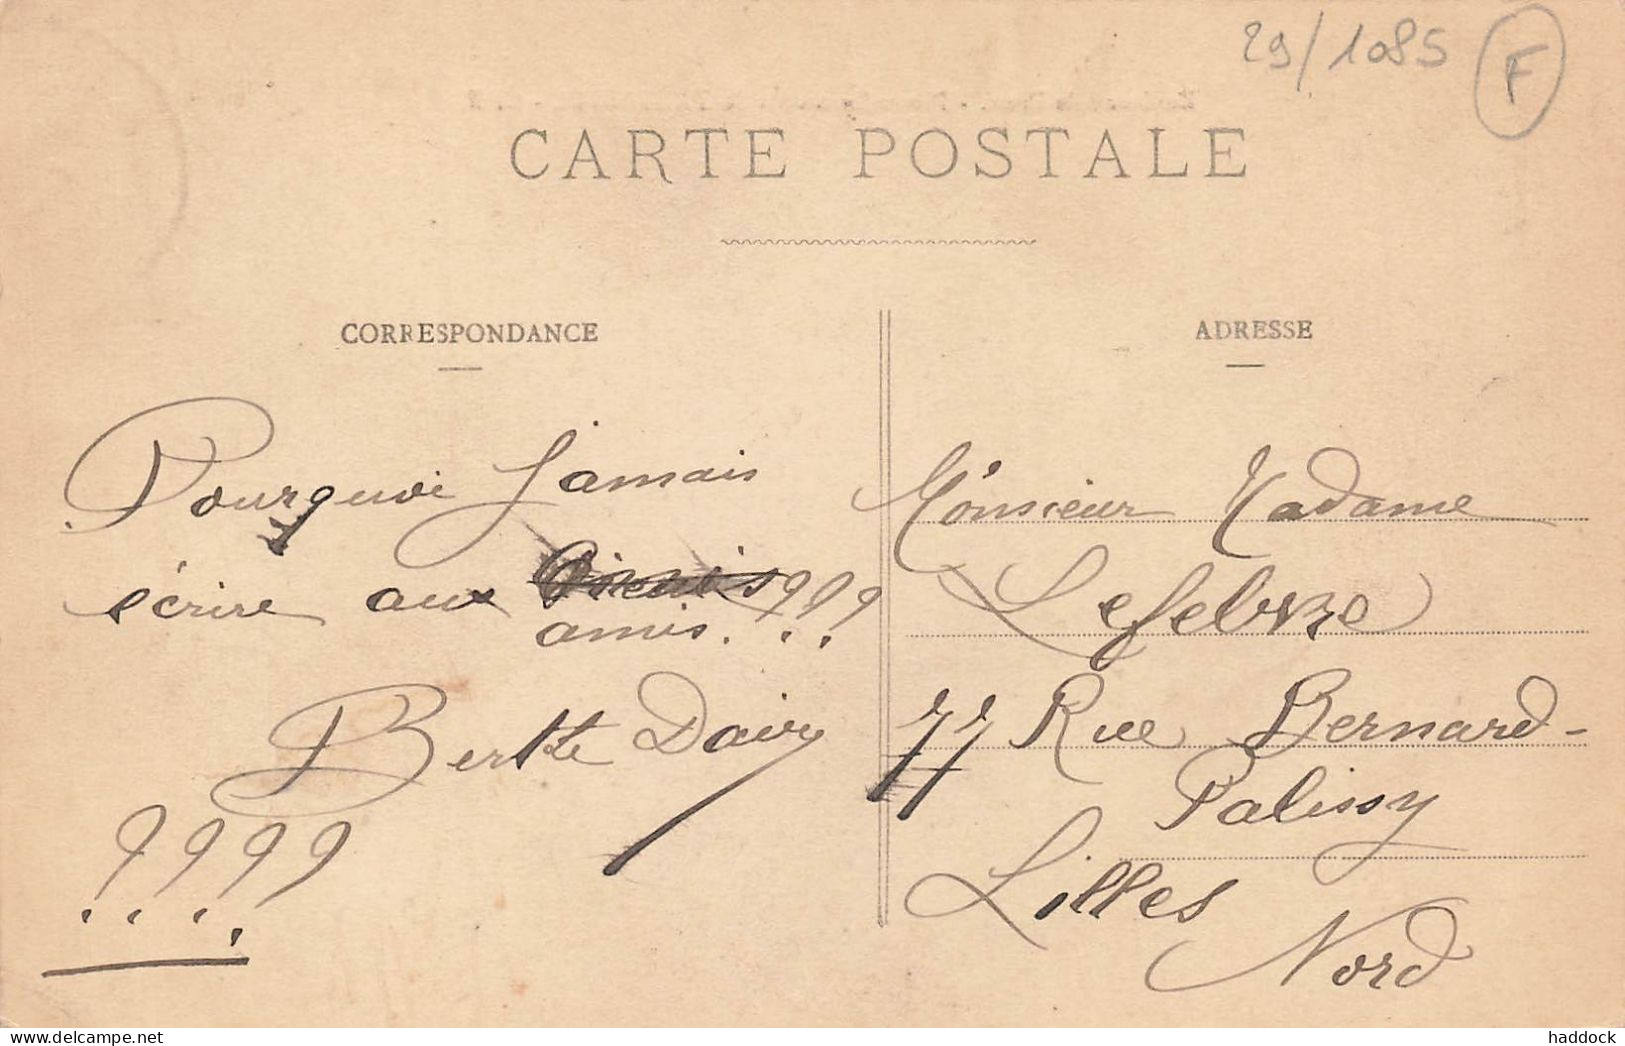 29/1085 F
CARTE POSTALE
CORRESPONDANCE
Pourquoi Jamais
écrire aux amis ???
amis. 
Berthe Dairy
????
ADRESSE
Monsieur Madame
Lefebvre
77 Rue Bernard-
Palissy
Lilles
Nord
delcampe.net
haddock